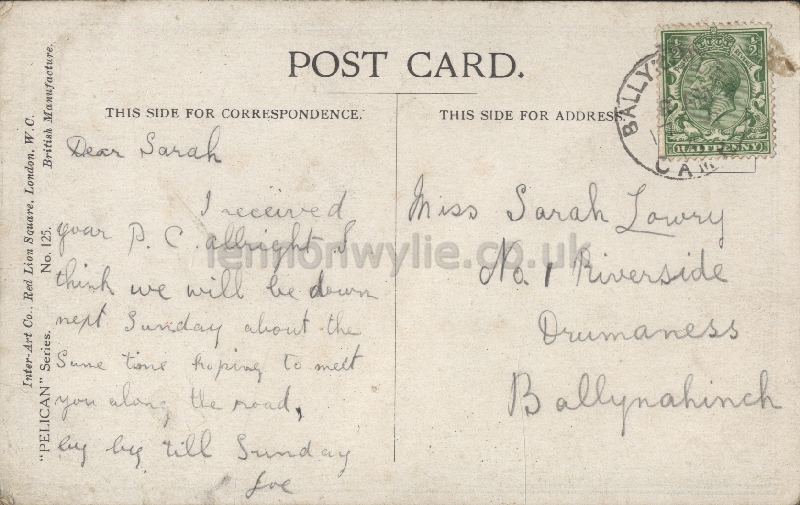 POST CARD.
THIS SIDE FOR CORRESPONDENCE.
THIS SIDE FOR ADDRESS
Dear Sarah
I received
your P. C. allright I
think we will be down
next Sunday about the
Same time hoping to meet
you along the road,
by by till Sunday
Joe
Miss Sarah Lowry
No. 1 Riverside
Drumaness
Ballynahinch
Inter-Art Co., Red Lion Square, London, W.C.
British Manufacture.
"PELICAN" Series. No. 125.
BALLY
HALFPENNY
lennonwylie.co.uk